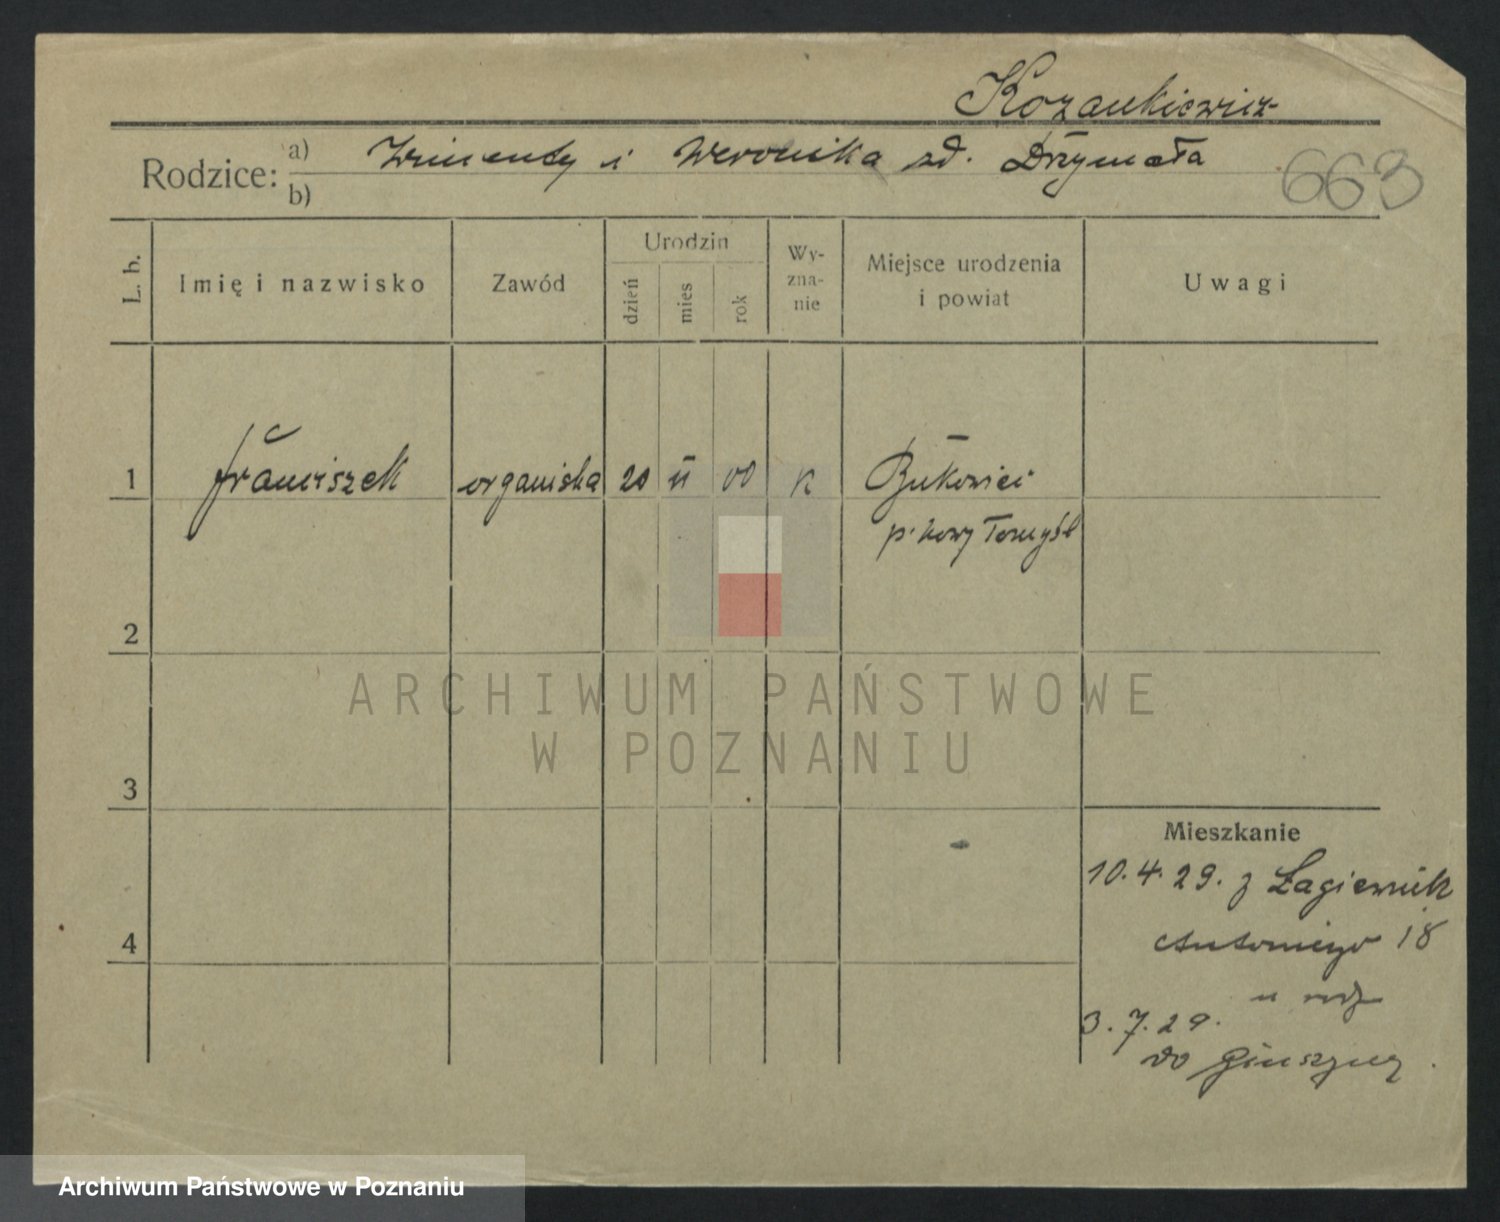 Kozankiewicz
Rodzice: a) Wincenty i Weronika zd. Drzymała
b)
663
L. b.
Imię i nazwisko
Zawód
Urodzin
dzień
mies
rok
Wy-
zna-
nie
Miejsce urodzenia
i powiat
Uwagi
1 Franciszek organista 20 II 00 k Bukowiec
p. Nowy Tomyśl
2
ARCHIWUM PAŃSTWOWE
W POZNANIU
3
Mieszkanie
10.4.29. z Łagiewnik
4
Antoniego 18
u rodz
3.7.29.
do
Archiwum Państwowe w Poznaniu